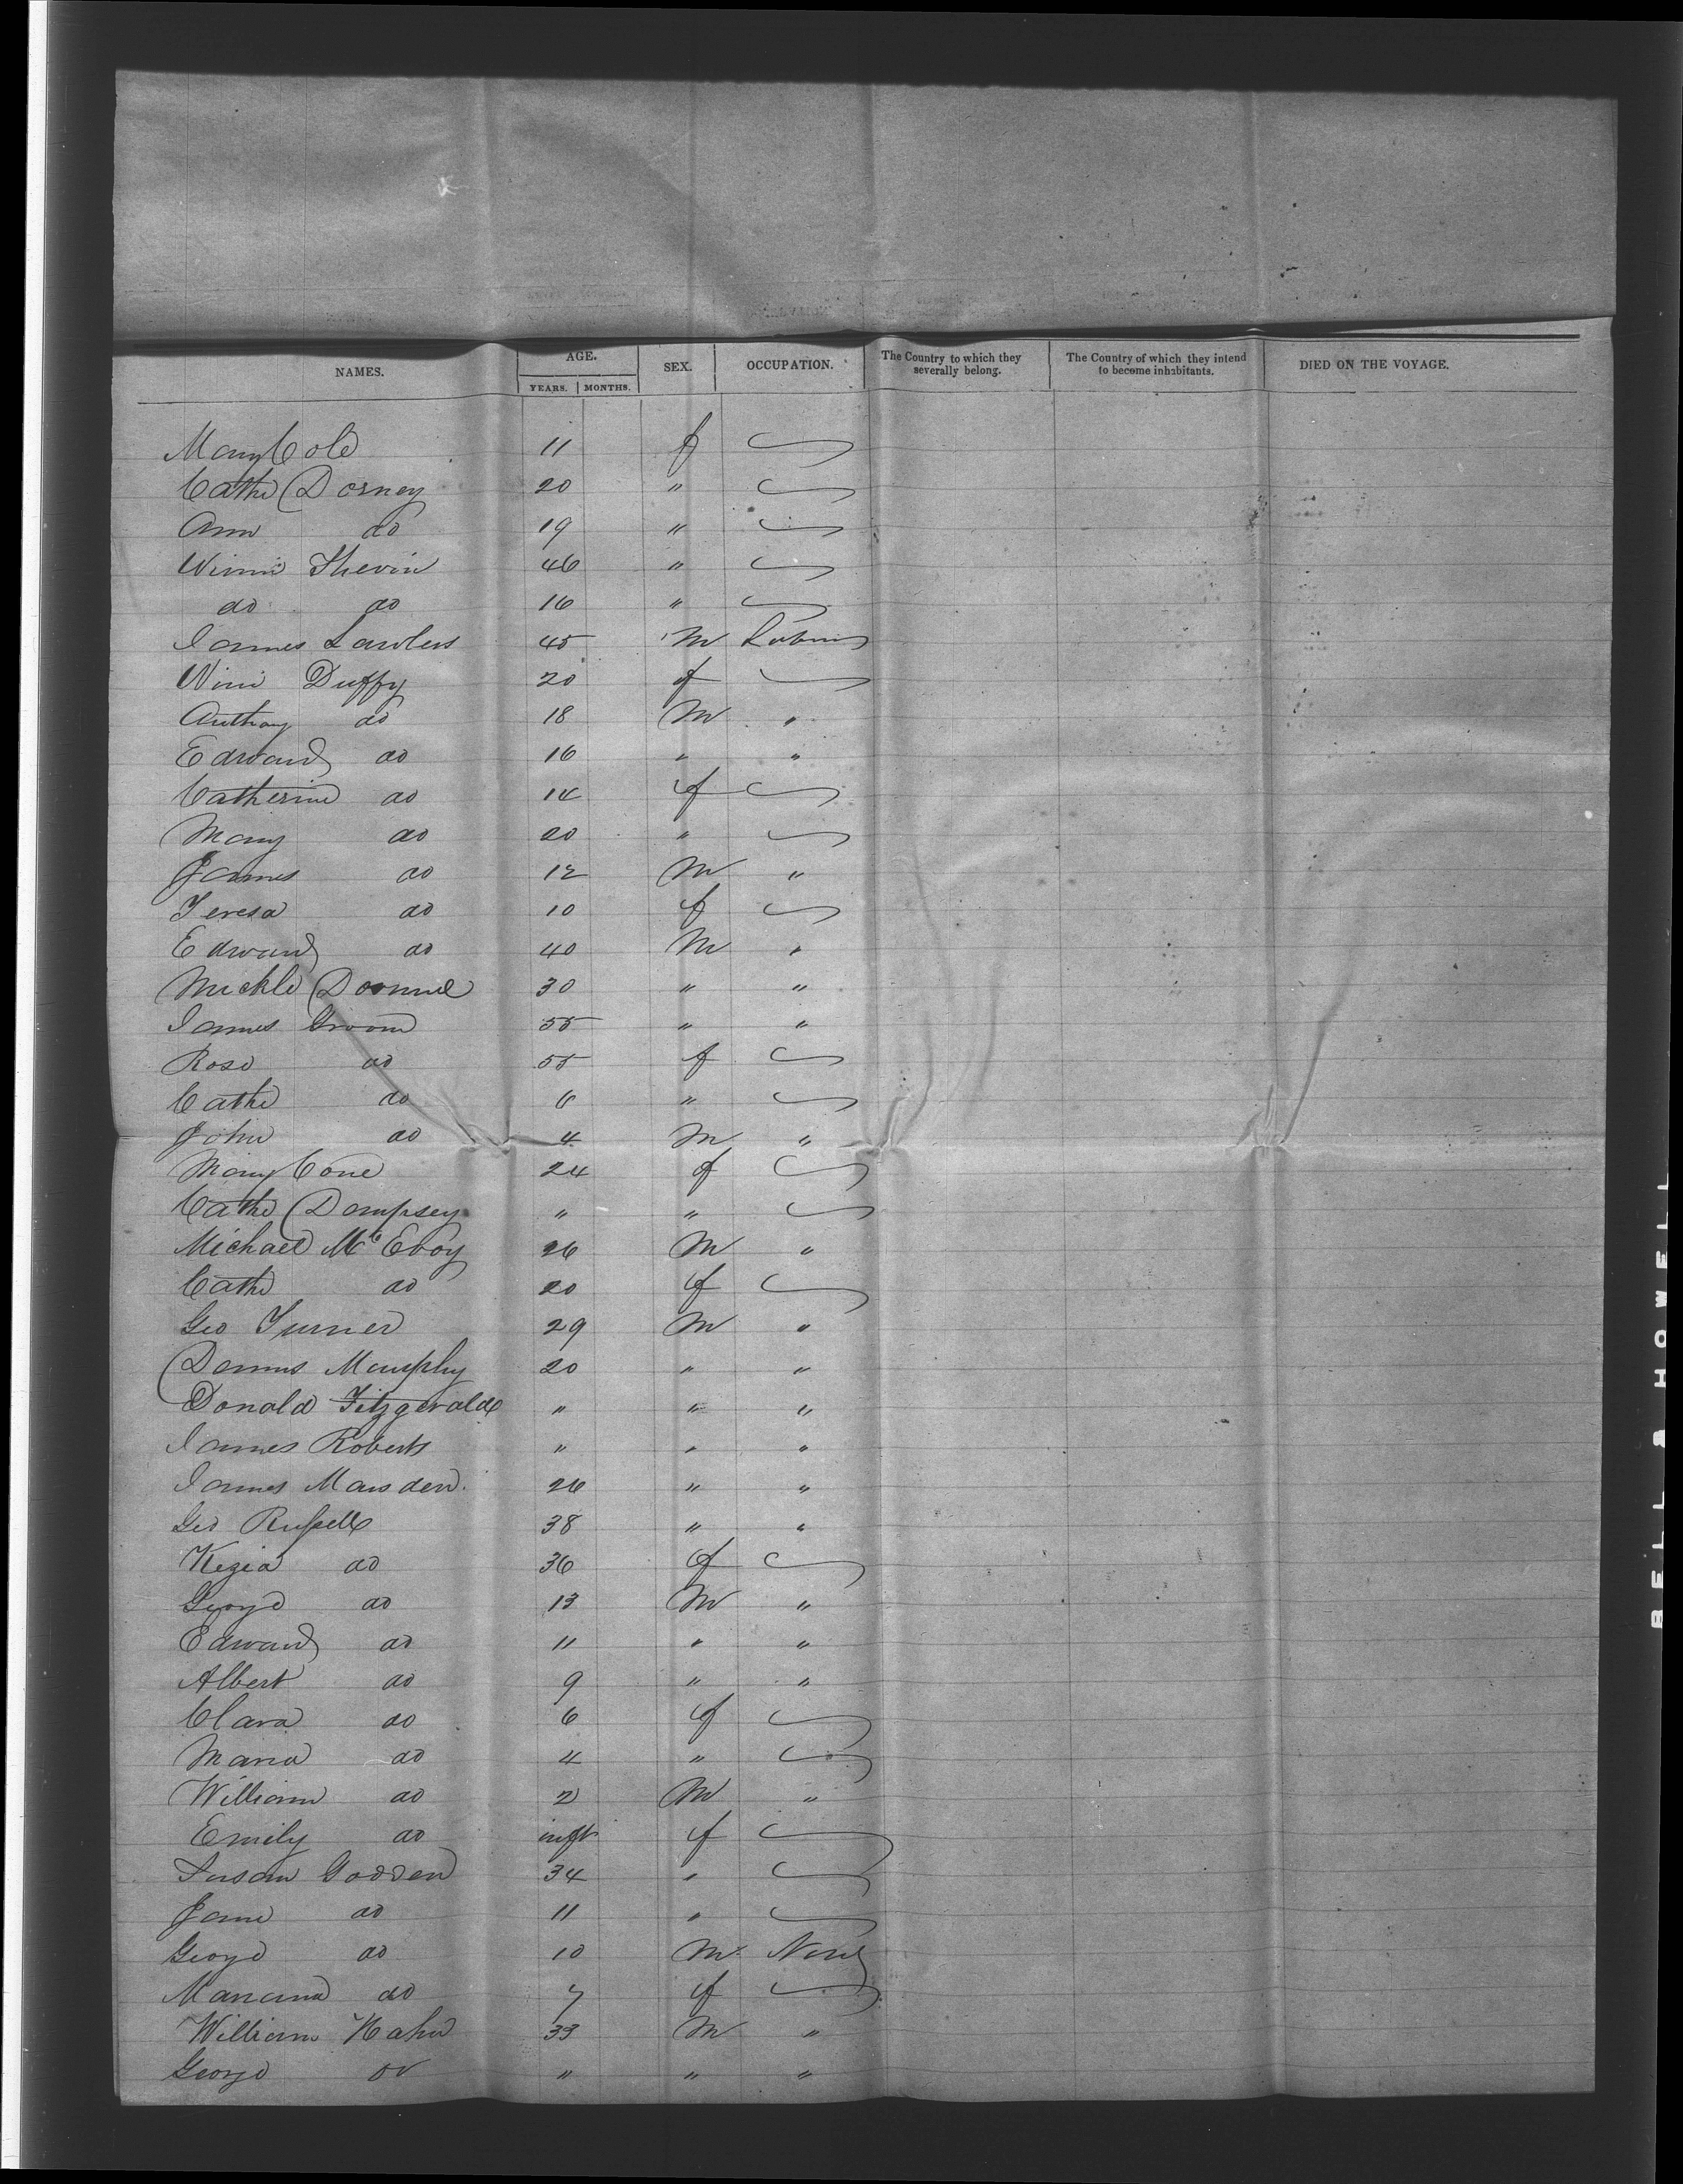 NAMES. AGE. YEARS. MONTHS. SEX. OCCUPATION. The Country to which they severally belong. The Country of which they intend to become inhabitants. DIED ON THE VOYAGE.
Mary Cole 11 f
Cathe Dorney 20 "
Ann do 19 "
Winni Thevin 46 "
do do 16 "
James Lawless 45 M
Wini Duffy 20 f
Anthony do 18 M "
Edward do 16 " "
Catherine do 14 f
Mary do 20 "
James do 12 M "
Teresa do 10 f
Edward do 40 M "
Mickle 30 " "
James Groom 55 " "
Rose do 55 f
Cathe do 6 "
John do 4 M "
Mary Cone 24 f
Cathe Dempsey " "
Michael Mc Evoy 26 M "
Cathe do 20 f
Geo Turner 29 M "
Dennis Murphy 20 " "
Donald Fitzgerald " " "
James Roberts " " "
James Marsden 26 " "
Geo Russell 38 " "
Kezia do 36 f
George do 13 M "
Edward do 11 " "
Albert do 9 " "
Clara do 6 f
Maria do 4 "
William do 2 M "
Emily do inft f
Susan Godden 34 "
Jane do 11 "
George do 10 M None
do 7 f
William Hahn 33 M "
George do " " "
BELL & HOWELL